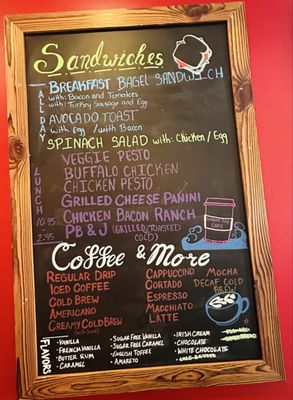 Sandwiches
ALL DAY
BREAKFAST BAGEL SANDWICH
with: Bacon and Tomatoes
with: Turkey Sausage and Egg
AVOCADO TOAST
with Egg / with Bacon
SPINACH SALAD with: Chicken / Egg
LUNCH
10:45
2:45
VEGGIE PESTO
BUFFALO CHICKEN
CHICKEN PESTO
GRILLED CHEESE PANINI
CHICKEN BACON RANCH
PB & J (GRILLED/TOASTED
COLD)
CAFE
Coffee & More
REGULAR DRIP
ICED COFFEE
COLD BREW
AMERICANO
CREAMY COLD BREW
CAPPUCCINO
CORTADO
ESPRESSO
MACCHIATO
LATTE
MOCHA
DECAF COLD
BREW
FLAVORS
-VANILLA
-FRENCH VANILLA
-BUTTER RUM
-CARAMEL
-SUGAR FREE VANILLA
-SUGAR FREE CARAMEL
-ENGLISH TOFFEE
-AMARETO
-IRISH CREAM
-CHOCOLATE
-WHITE CHOCOLATE